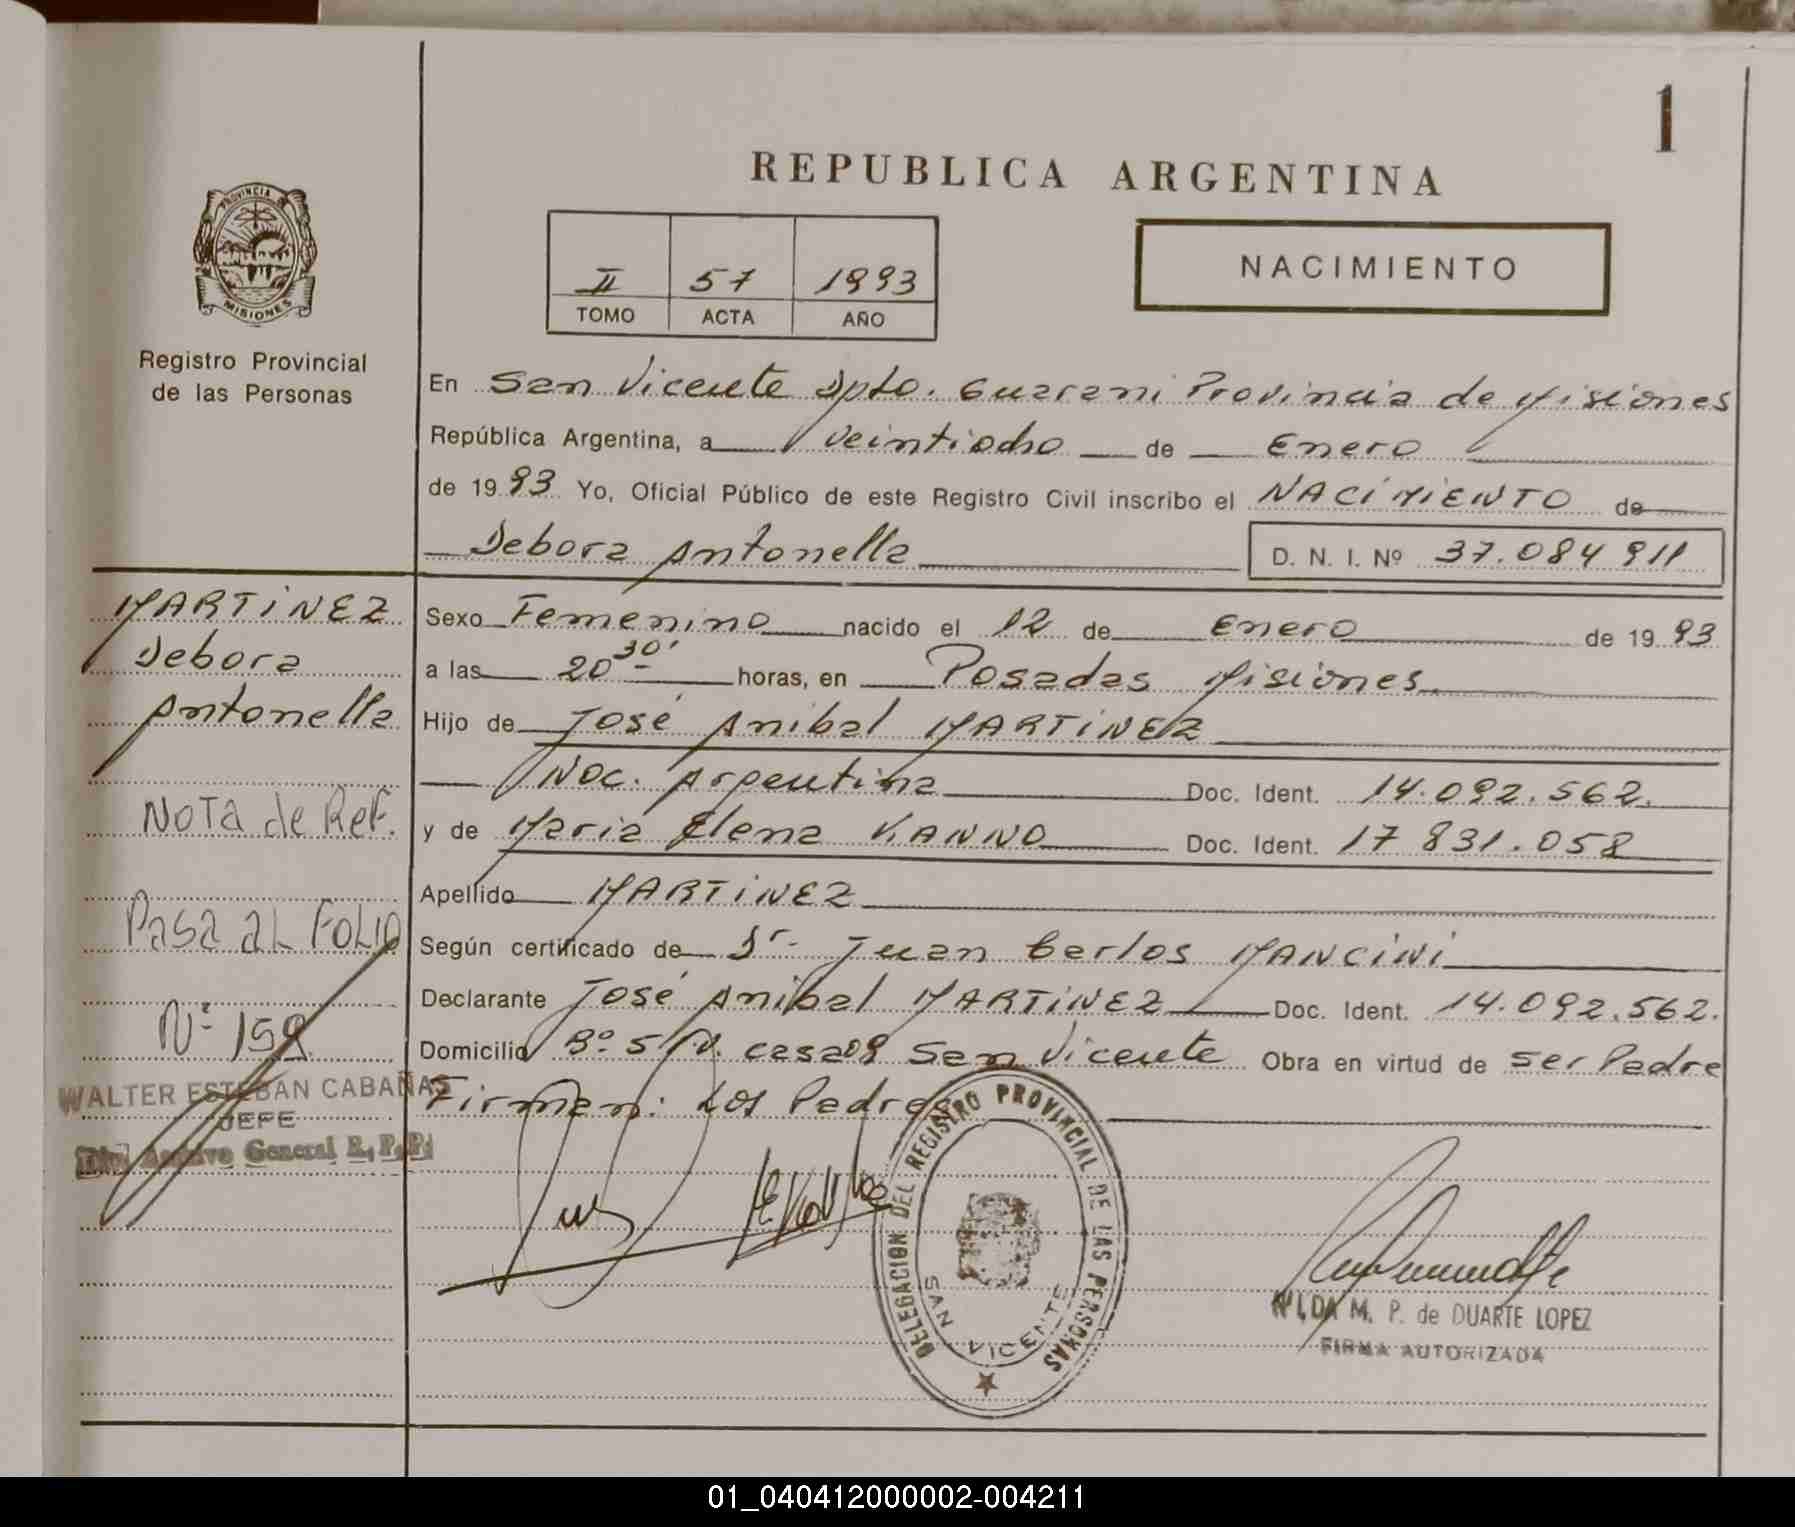 1
REPUBLICA ARGENTINA
PROVINCIA
MISIONES
Registro Provincial
de las Personas
II 57 1993
TOMO ACTA AÑO
NACIMIENTO
En San Vicente Dpto. Guarani Provincia de Misiones
República Argentina, a veintiocho de Enero
de 1993 Yo, Oficial Público de este Registro Civil inscribo el NACIMIENTO de
Debora Antonella D. N. I. Nº 37.084 911
MARTINEZ
Debora
Antonella
Nota de Ref.
Pasa al Folio
Nº 159
WALTER ESTEBAN CABAÑAS
JEFE
Archivo General R.P.P.
Sexo Femenino nacido el 12 de Enero de 1993
a las 20 30' horas, en Posadas Misiones
Hijo de José Anibal MARTINEZ
Nac. Argentina Doc. Ident. 14.092.562.
y de Maria Elena KANNO Doc. Ident. 17 831.058
Apellido MARTINEZ
Según certificado de Dr. Juan Carlos MANCINI
Declarante José Anibal MARTINEZ Doc. Ident. 14.092.562.
Domicilio Bº 5 casa 09 San Vicente Obra en virtud de ser Padre
Firman: Los Padres
DELEGACION DEL REGISTRO PROVINCIAL DE LAS PERSONAS
SAN VICENTE
NILDA M. P. de DUARTE LOPEZ
FIRMA AUTORIZADA
01_040412000002-004211